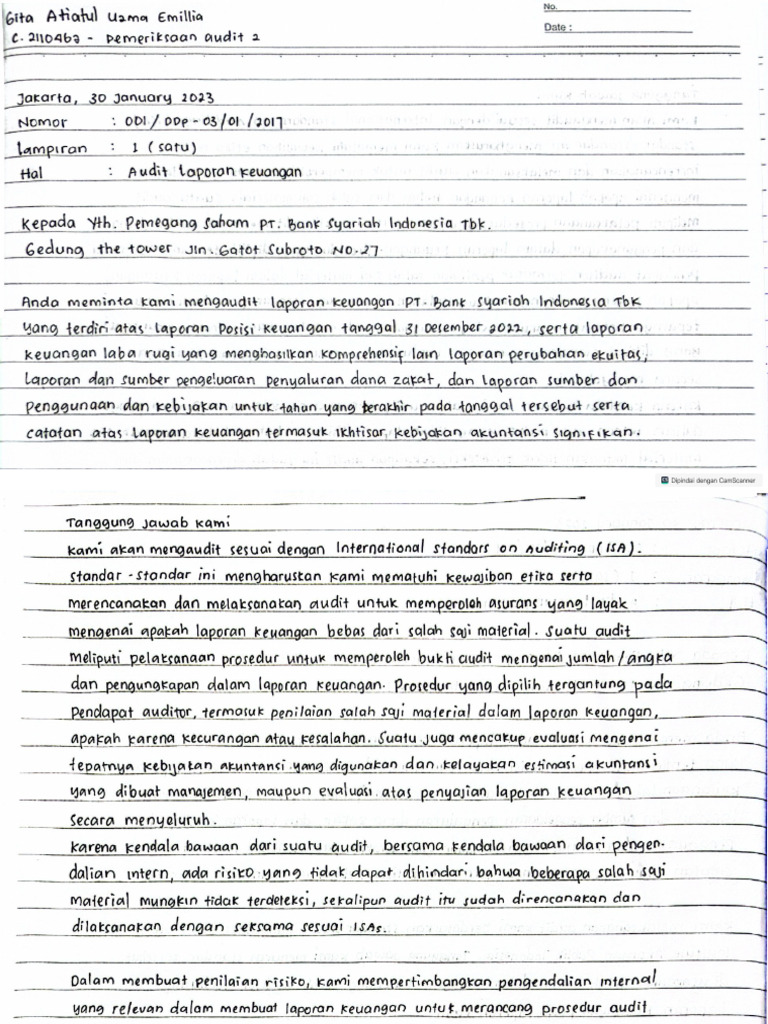 Gita Atiatul Uzma Emillia
C.2110463 - Pemeriksaan audit 2
No.
Date :
Jakarta, 30 January 2023
Nomor : 001/DDP-03/01/2017
Lampiran : 1 (satu)
Hal : Audit Laporan Keuangan
Kepada Yth. Pemegang Saham PT. Bank Syariah Indonesia Tbk.
Gedung the tower Jln. Gatot Subroto NO.27
Anda meminta kami mengaudit laporan keuangan PT. Bank Syariah Indonesia Tbk
yang terdiri atas laporan Posisi keuangan tanggal 31 Desember 2022, serta laporan
keuangan laba rugi yang menghasilkan komprehensif lain laporan perubahan ekuitas,
laporan dan sumber pengeluaran penyaluran dana zakat, dan laporan sumber dan
penggunaan dan kebijakan untuk tahun yang terakhir pada tanggal tersebut serta
catatan atas laporan keuangan termasuk ikhtisar, kebijakan akuntansi signifikan.
Dipindai dengan CamScanner
Tanggung jawab kami
Kami akan mengaudit sesuai dengan International standars on Auditing (ISA).
Standar-standar ini mengharuskan kami mematuhi kewajiban etika serta
merencanakan dan melaksanakan audit untuk memperoleh asurans yang layak
mengenai apakah laporan keuangan bebas dari salah saji material. Suatu audit
meliputi pelaksanaan prosedur untuk memperoleh bukti audit mengenai jumlah/angka
dan pengungkapan dalam laporan keuangan. Prosedur yang dipilih tergantung pada
Pendapat auditor, termasuk penilaian salah saji material dalam laporan keuangan,
apakah karena kecurangan atau kesalahan. Suatu juga mencakup evaluasi mengenai
tepatnya kebijakan akuntansi yang digunakan dan kelayakan estimasi akuntansi
yang dibuat manajemen, maupun evaluasi atas penyajian laporan keuangan
secara menyeluruh.
Karena kendala bawaan dari suatu audit, bersama kendala bawaan dari pengen-
dalian intern, ada risiko yang tidak dapat dihindari, bahwa beberapa salah saji
material mungkin tidak terdeteksi, sekalipun audit itu sudah direncanakan dan
dilaksanakan dengan seksama sesuai ISAs.
Dalam membuat penilaian risiko, kami mempertimbangkan pengendalian internal
yang relevan dalam membuat laporan keuangan untuk merancang prosedur audit